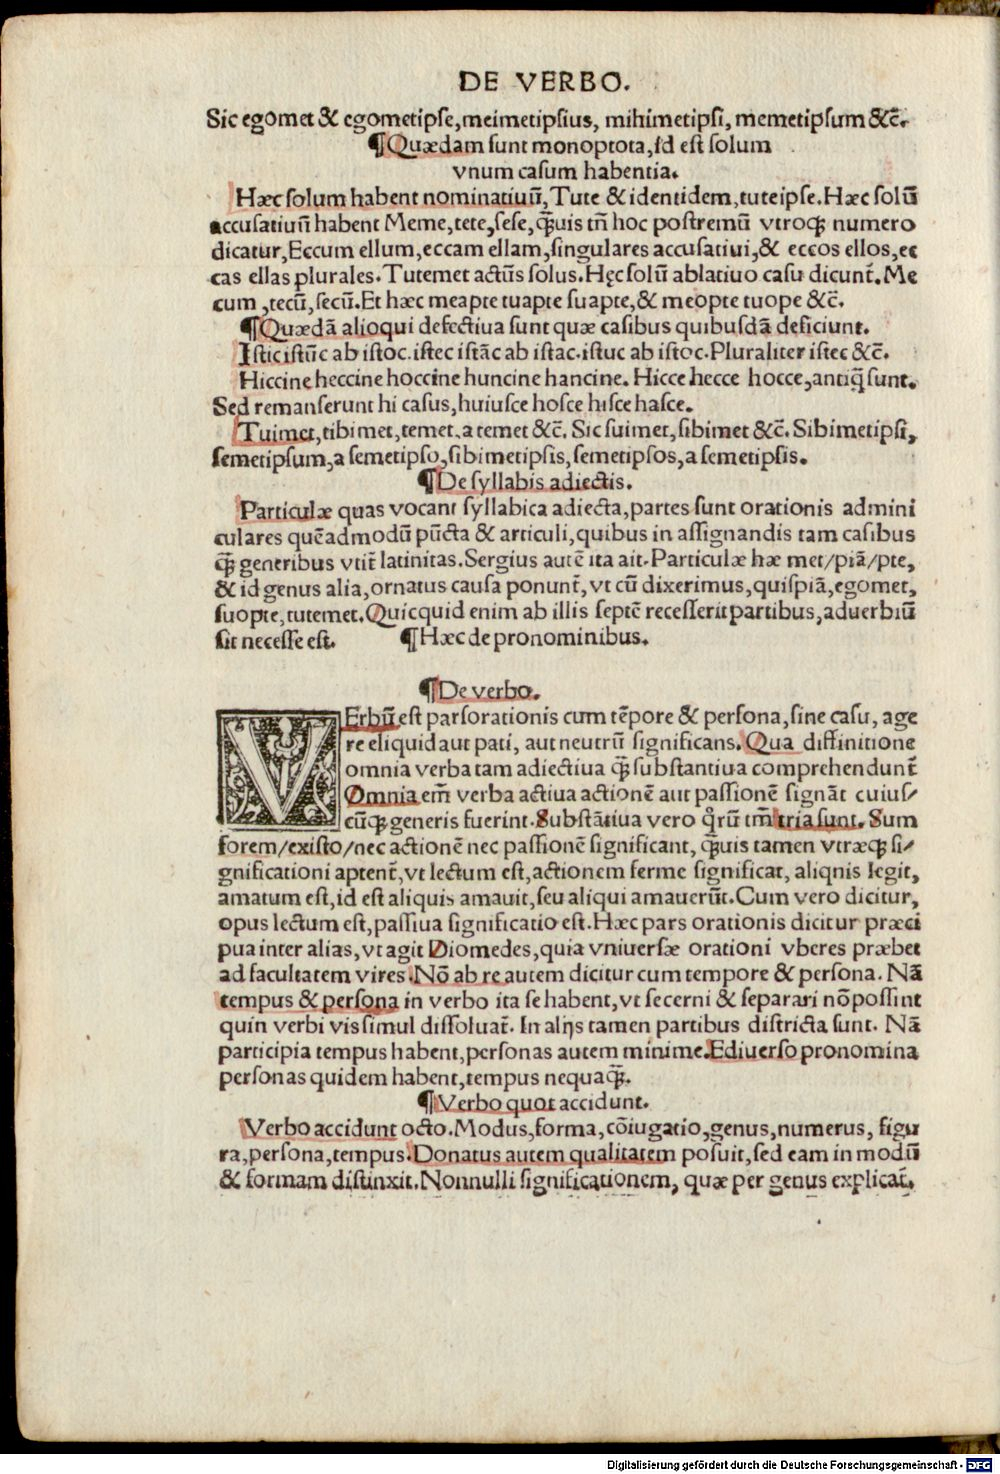 DE VERBO.
Sic egomet & egometipse, meimetipsius, mihimetipsi, memetipsum &c̄.
¶Quædam sunt monoptota, id est solum
vnum casum habentia.
Hæc solum habent nominatiuū, Tute & identidem, tuteipse. Hæc solū
accusatiuū habent Meme, tete, sese, q̄uis tn̄ hoc postremū vtroq; numero
dicatur, Eccum ellum, eccam ellam, singulares accusatiui, & eccos ellos, ec
cas ellas plurales. Tutemet actūs solus. Hęc solū ablatiuo casu dicunt̄. Me
cum, tecū, secū. Et hæc meapte tuapte suapte, & meopte tuope &c̄.
¶Quædā alioqui defectiua sunt quæ casibus quibusdā deficiunt.
Istic istūc ab istoc. istec istāc ab istac. istuc ab istoc. Pluraliter istec &c̄.
Hiccine heccine hoccine huncine hancine. Hicce hecce hocce, antiq̄ sunt.
Sed remanserunt hi casus, huiusce hosce hisce hasce.
Tuimet, tibimet, temet, a temet &c̄. Sic suimet, sibimet &c̄. Sibimetipsi,
semetipsum, a semetipso, sibimetipsis, semetipsos, a semetipsis.
¶De syllabis adiectis.
Particulæ quas vocant syllabica adiecta, partes sunt orationis admini
culares quēadmodū pūcta & articuli, quibus in assignandis tam casibus
q̄ generibus vtit̄ latinitas. Sergius autē ita ait. Particulæ hæ met/piā/pte,
& id genus alia, ornatus causa ponunt̄, vt cū dixerimus, quispiā, egomet,
suopte, tutemet. Quicquid enim ab illis septē recesserit partibus, aduerbiū
sit necesse est. ¶Hæc de pronominibus.
¶De verbo.
VErbū est pars orationis cum tēpore & persona, sine casu, age
re eliquid aut pati, aut neutrū significans. Qua diffinitione
omnia verba tam adiectiua q̄ substantiua comprehendunt̄
Omnia em̄ verba actiua actionē aut passionē signāt cuius/
cūq; generis fuerint. Substātiua vero q̊rū tm̄ tria sunt. Sum
forem/existo/nec actionē nec passionē significant, q̄uis tamen vtræq; si/
gnificationi aptent̄, vt lectum est, actionem ferme significat, aliqnis legit,
amatum est, id est aliquis amauit, seu aliqui amauerūt. Cum vero dicitur,
opus lectum est, passiua significatio est. Hæc pars orationis dicitur præci
pua inter alias, vt agit Diomedes, quia vniuersæ orationi vberes præbet
ad facultatem vires. Nō ab re autem dicitur cum tempore & persona. Nā
tempus & persona in verbo ita se habent, vt secerni & separari nō possint
quin verbi vis simul dissoluat̄. In alijs tamen partibus districta sunt. Nā
participia tempus habent, personas autem minime. Ediuerso pronomina
personas quidem habent, tempus nequaq̄.
¶Verbo quot accidunt.
Verbo accidunt octo. Modus, forma, cōiugatio, genus, numerus, figu
ra, persona, tempus. Donatus autem qualitatem posuit, sed eam in modū
& formam distinxit. Nonnulli significationem, quæ per genus explicat̄.
Digitalisierung gefördert durch die Deutsche Forschungsgemeinschaft - DFG